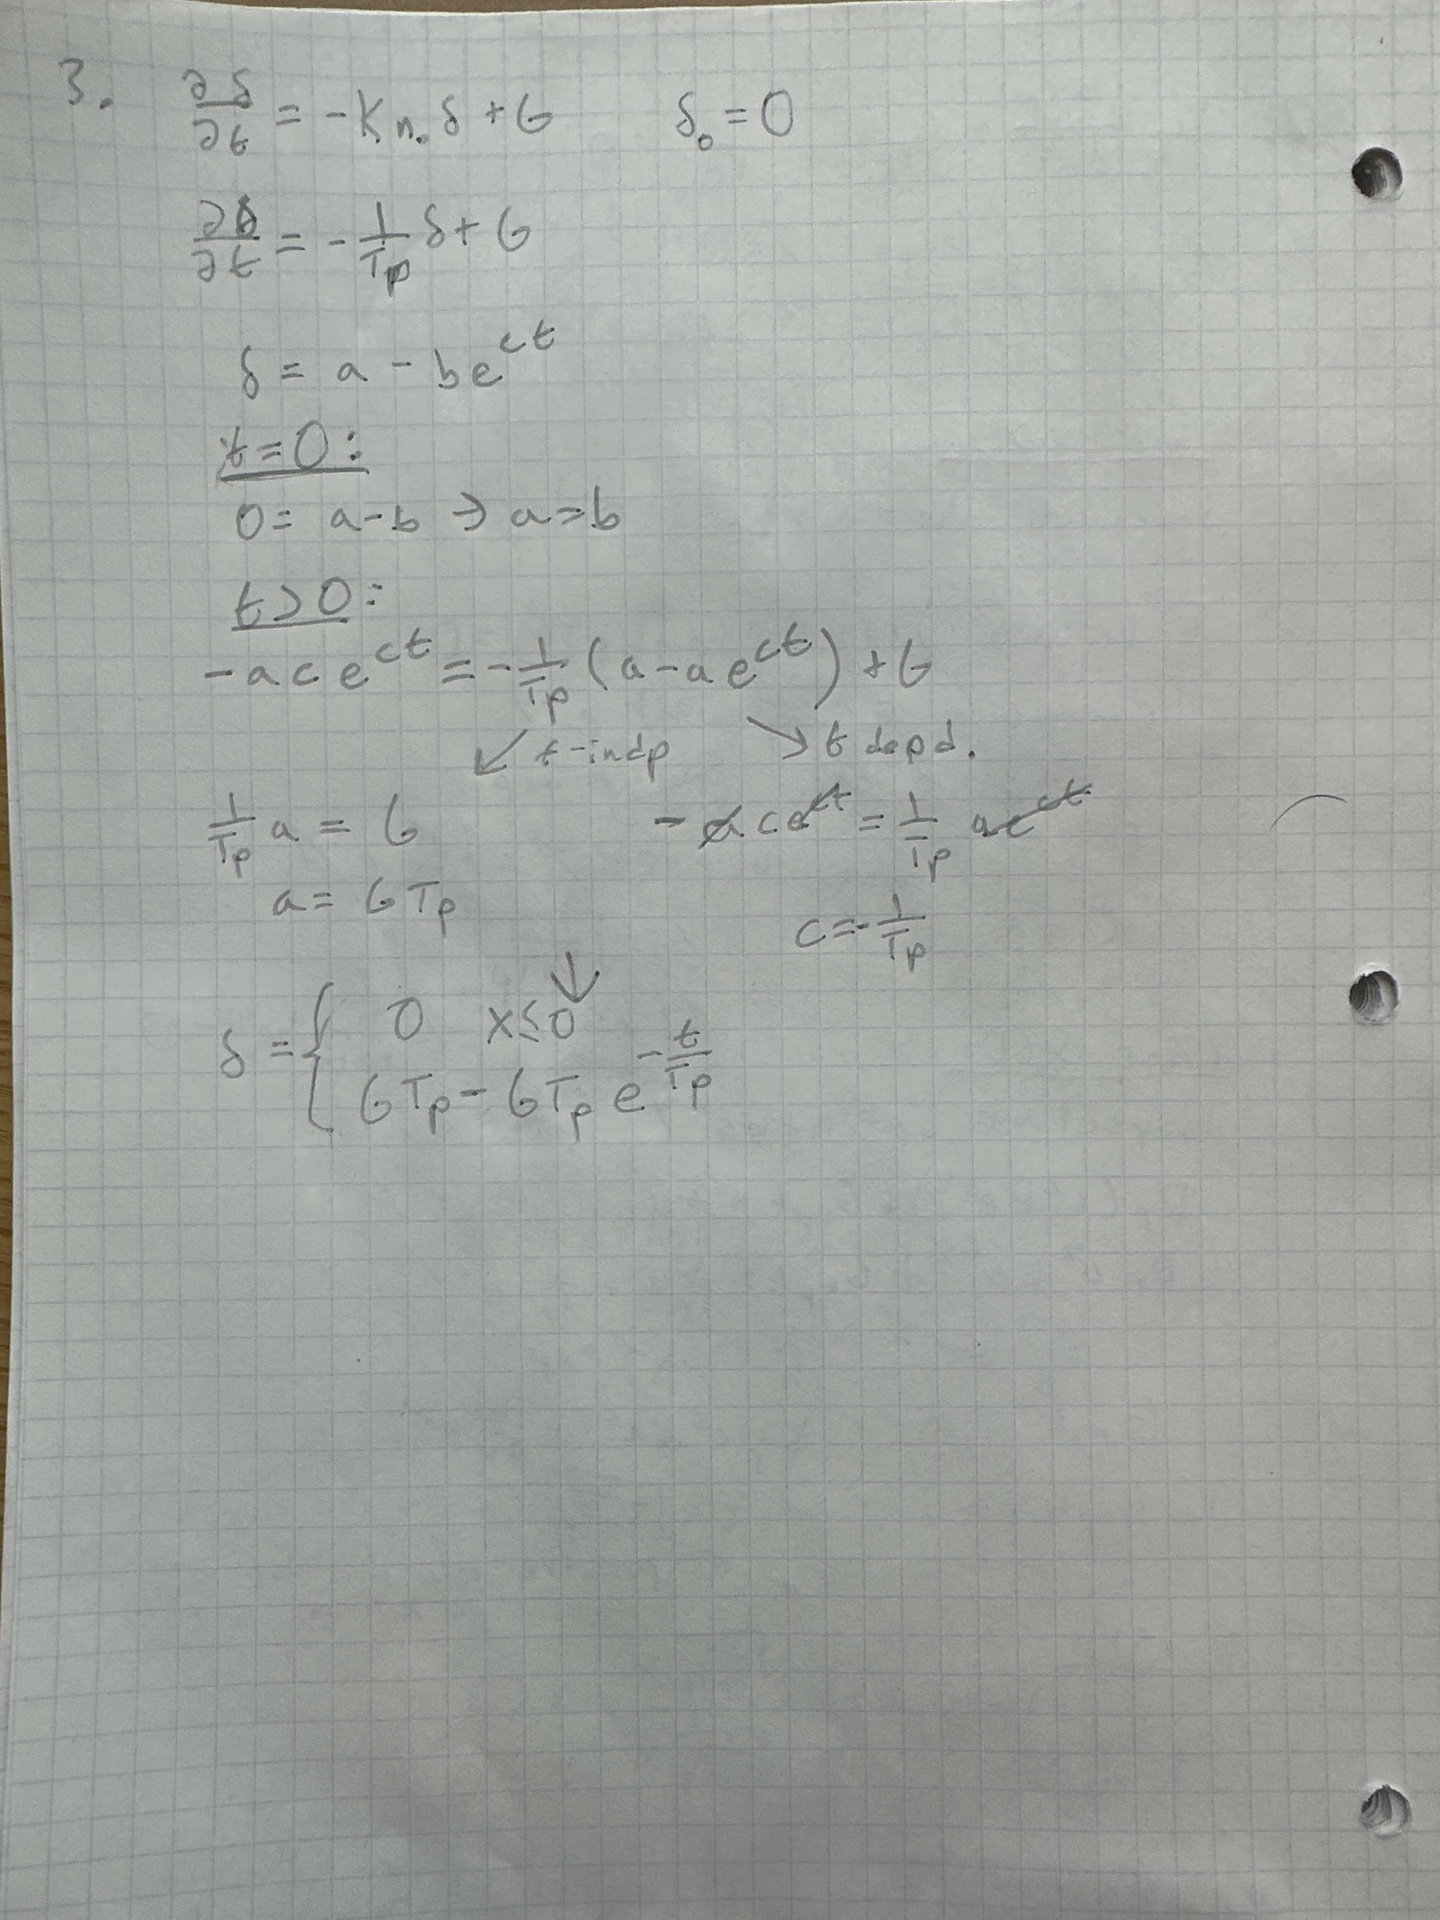 3. ∂δ/∂t = -K n₀ δ + G δ₀ = 0
∂δ/∂t = - 1/τp δ + G
δ = a - be^ct
t=0:
0 = a-b → a=b
t>0:
-ace^ct = - 1/τp (a-ae^ct) + G
↙ t-indp ↘ t depd.
1/τp a = G -ace^ct = 1/τp ae^ct
a = Gτp c = - 1/τp
↓
δ = { 0 x≤0
Gτp - Gτp e^-t/τp